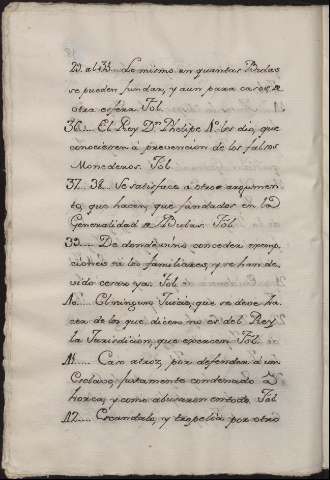 29. al 35. Lo mismo en quantas Bulas
se pueden fundar, y aun para casos de
otra esfera. Fol.
36.... El Rey Dn. Phelipe 4o. les dio, que
conociesen à prevencion de los falsos
Monederos. Fol.
37. 38.... Se satisface à otros argumen
tos, que hacen, que fundados en la
Generalidad de Bulas. Fol.
39.... De donde vino conceder exemp
ciones à los familiares, y se han de
vido cesar ya. Fol.
40.... El ningun Juicio, que se debe ha
cer de los que dicen no es del Rey
la Jurisdicion, que exercen. Fol.
41.... Caso atroz, por defender à un
Esclavo, justamente condenado à
horca, y como abusaron en todo. Fol
42.... Escandalo, y tropelia por otro